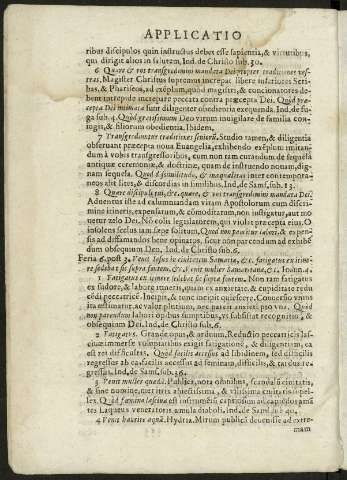 APPLICATIO
ribus discipulos quin instructus debet esse sapientia, & virtutibus,
qui dirigit alios in salutem, Ind. de Christo sub. 30.
6 Quare & vos transgredimini mandata Dei propter traditiones vestras,
Magister Christus supremus increpat libere inferiores Scribas,
& Phariseos, ad exemplum, quod magistri, & concionatores debent
intrepide increpare peccata contra præcepta Dei. Quod præcepta
Dei mandata sunt diligenter obedientia exequenda. Ind. de fuga
sub. 4. Quod gratissimum Deo virum invigilare de familia coniugis,
& filiorum obedientia. Ibidem.
7 Transgrediuntur traditiones seniorũ. Studio tamen, & diligentia
observant præcepta nova Euangelia, exhibendo exemplum imitandum
à vobis transgressoribus, cum non tam curandum de sequela
antiquæ ceremoniæ, & doctrinæ, quam de instruendo nouam, dignam
sequela. Quod dissimilitudo, & inæqualitas inter contemporaneos
alit lites, & discordias in similibus. Ind. de Sams. sub. 13.
8 Quare discipuli tui, &c. quare, & vos transgredimini mandata Dei.
Aduentus iste ad calumniandum vitam Apostolorum cum discrimine
itineris, expensarum, & cõmoditatum, non iustigat, aut mouetur
zelo Dei. Nõ colit legislatorem, qui violat præcepta eius. O
insolens scelus iam sæpe solitum. Quod non paucitur labori, & expensis
ad diffamandos bene opinatos, sicut non parcendum ad exhibendum
obsequium Deo. Ind. de Christo sub. 6.
Feria 6. post 3. Venit Iesus in ciuitatem Samariæ, &c. fatigatus ex itinere
sedebat sic supra fontem, &c. venit mulier Samaritana, &c. Ioann. 4.
1 Fatigatus ex itinere sedebat sic supra fontem. Non tam fatigatus
ex sudore, & labore itineris, quam ex anxietate, & cupiditate reducẽdi
peccatricẽ. Incipit, & tunc incipit quiescere. Conuersio vnius
ita æstimatur, ac valor plurium, nec parit anxius pro vno. Quod
non parendum labori opibus sumptibus, vt subsistat recognitus, &
obsequium Dei. Ind. de Christo sub. 6.
2 Fatigatus. Grande opus, & arduum. Reductio peccatricis lasciuiæ
immersæ voluptatibus exigit fatigationẽ, & diligentiam, ea
est rei difficultas. Quod facilis accessus ad libidinem, sed difficilis
regressus ab ea, facilis accessus ad feminam, difficilis, & tardus regressus.
Ind. de Sams. sub. 36.
3 Venit mulier quædã. Publica, nota omnibus, scandalũ ciuitatis,
& sine nomine, meretrix abiectissima, & vilissima ciuitatis pellex.
Quod fœmina lasciua est instrumẽtũ captiosum ad capiẽdos amãtes
Laqueus venerationis amula diaboli, Ind. de Sams. sub. 40.
4 Venit haurire aquã. Hydria. Mirum publica deuenisse ad extremam